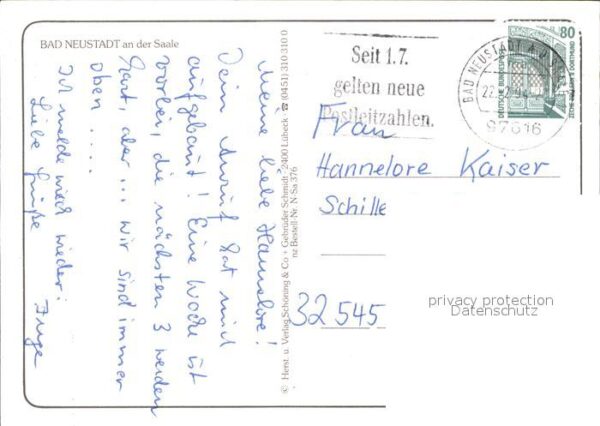 BAD NEUSTADT an der Saale
Meine liebe Hannelore!
Dein Anruf hat mich
aufgebaut! Eine Woche ist
vorbei, die nächsten 3 werden
hart, aber ... wir sind immer
oben ....
Ich melde mich wieder!
Liebe Grüße
Inge
© Herst. u. Verlag Schöning & Co + Gebrüder Schmidt · 2400 Lübeck · ☎ (0451) 310 310 0
nz Bestell-Nr. N-Sa 376
Seit 1.7.
gelten neue
Postleitzahlen.
BAD NEUSTADT A D
97616
80
DEUTSCHE BUNDESPOST
ZECHE ZOLLERN II DORTMUND
Frau
Hannelore Kaiser
Schille
32545
privacy protection
Datenschutz